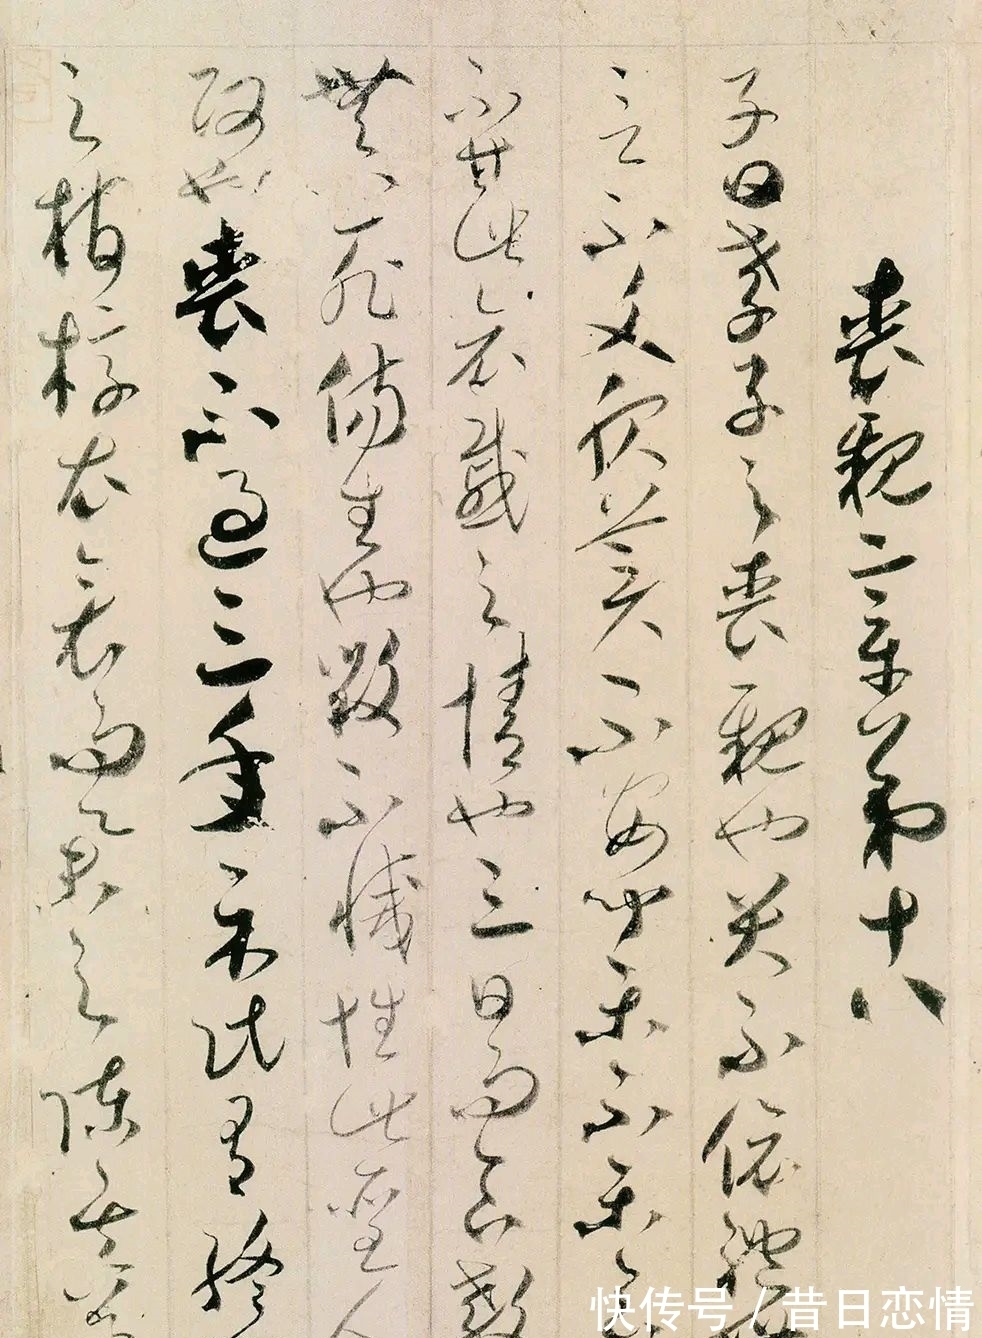 喪親章第十八
子曰孝子之喪親也哭不依禮
言不文服美不安聞樂不樂食
不甘此哀戚之情也三日而食教
無以死傷生也毀不滅性此聖人
政也喪不過三年示民有終
之棺椁衣衾而舉之陳其簠
快传号/昔日恋情